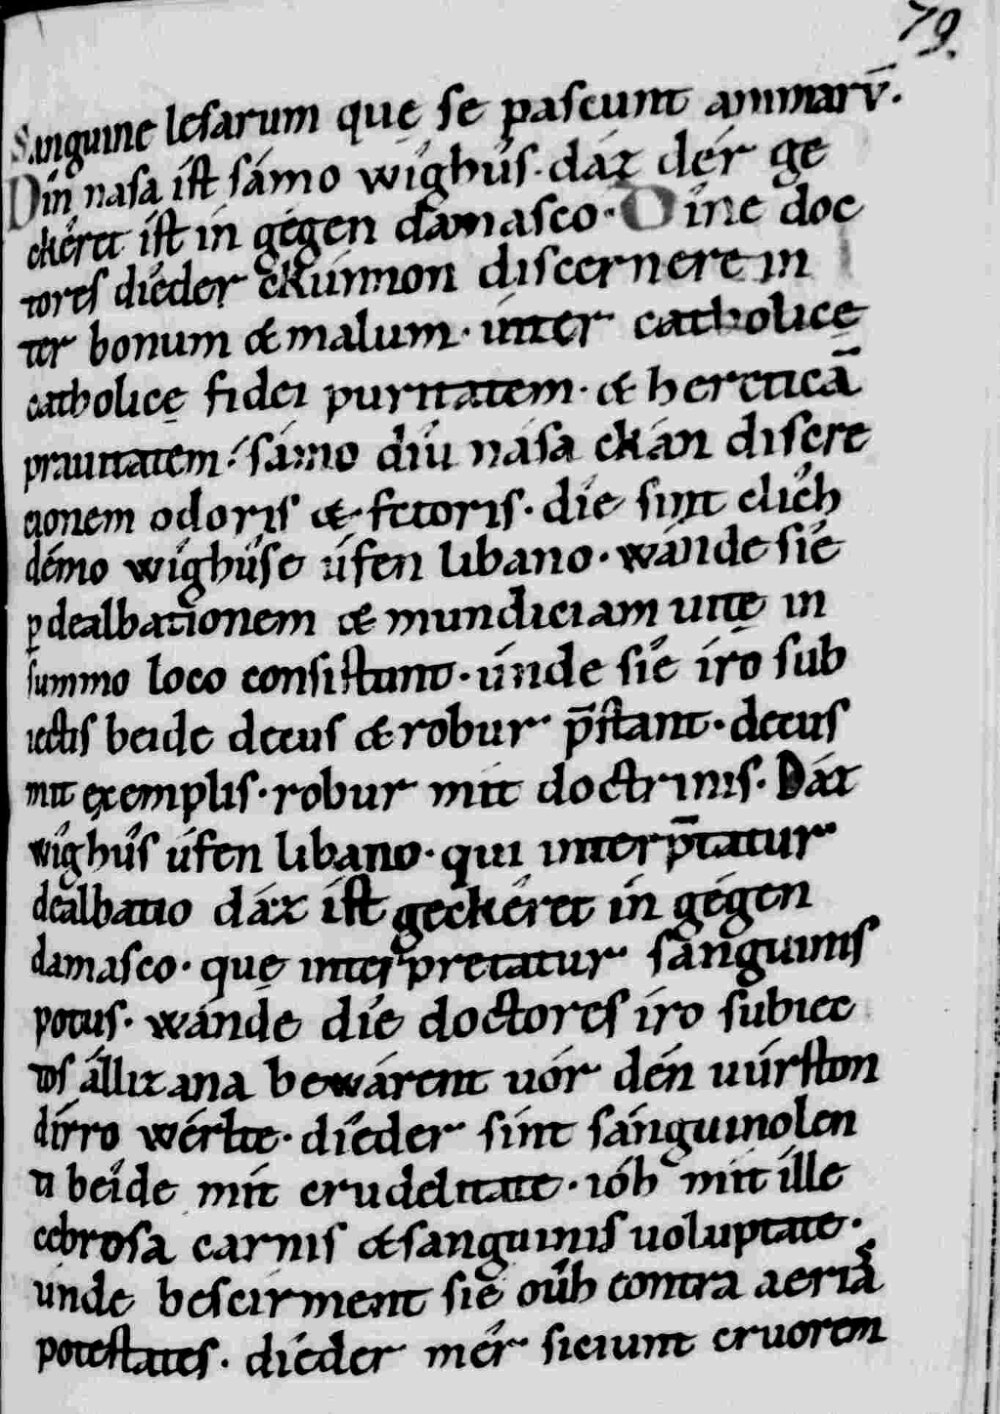 79.
Sanguine lesarum quę se pascunt animarū.
Din nasa ist sámo wíghûs. dáz dér ge
ckéret ist in gégen damasco. Dine doc
tores diéder ckúnnon discernere in
ter bonum & malum. inter catholicę
catholicę fidei puritatem. & hereticā
prauitatem. sámo diû nása ckán discre
cionem odoris & fetoris. díe sint elích
démo wíghûse úfen libano. wánde sié
ꝑ dealbationem & mundiciam uitę in
summo loco consistunt. únde sié íro sub
iectis beide decus & robur p̄stant. decus
mit exemplis. robur mit doctrinis. Dáz
wíghûs úfen libano. qui interp̄tatur
dealbatio dáz íst geckéret in gégen
damasco. quę interpretatur sanguinis
potus. wánde díe doctores íro subiec
tos álliz ana bewárent uór dén uúrston
dírro wérlte. díeder sínt sánguinolen
ti beíde mit crudelitate. ióh mit ille
cebrosa carnis & sanguinis uoluptate.
únde bescirment sié oûh contra aeriās
potestates. díeder mér siciunt cruorem